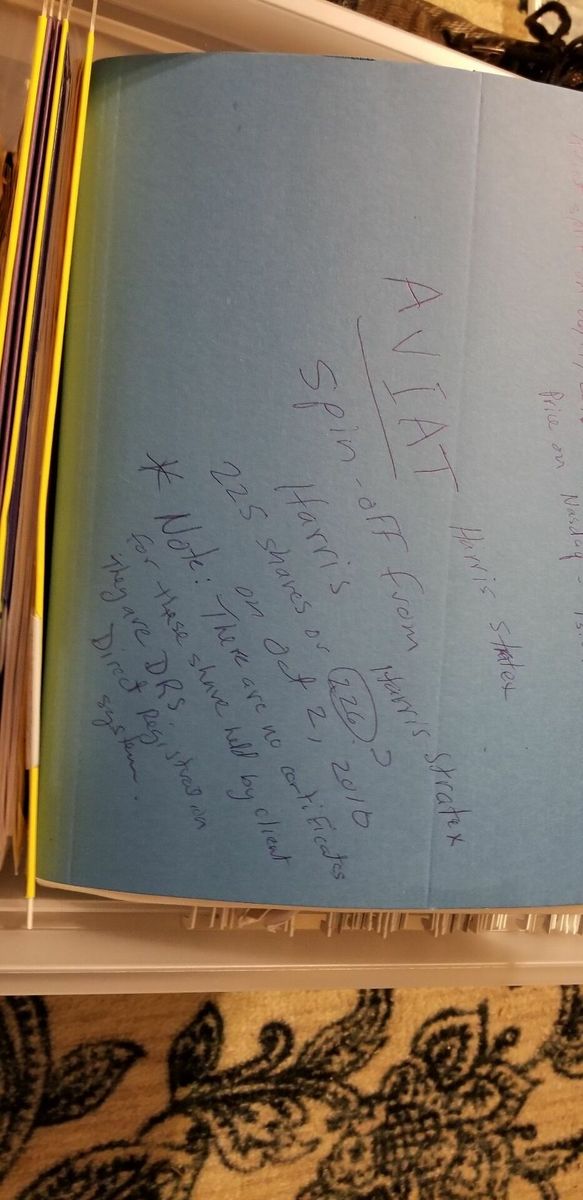 Price on Nasdaq
Harris Stratex
AVIAT
Spin-off from Harris Stratex
Harris
225 shares or 226?
on Oct 2, 2010
* Note: There are no certificates
for these share held by client
They are DRS.
Direct Registration
system.